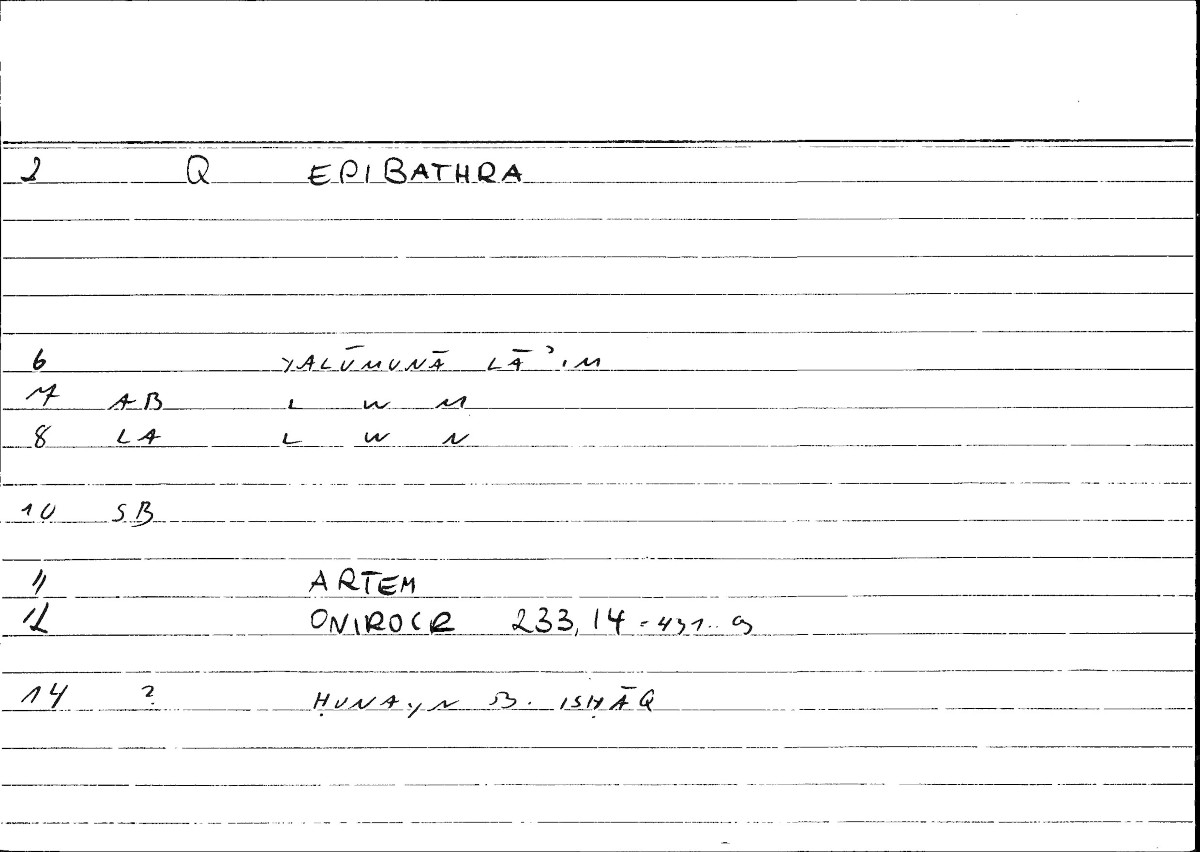 2 Q EPIBATHRA
6 YALŪMUNĀ LĀʾIM
7 AB L W M
8 LA L W N
10 SB
11 ARTEM
12 ONIROCR 233,14 = 431.. 9
14 ? ḤUNAYN B. ISḤĀQ